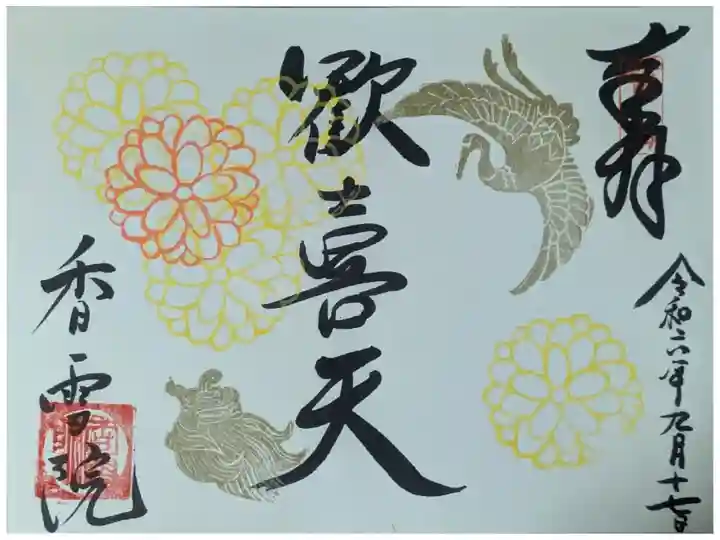 奉拝
令和六年九月十七日
歓喜天
香雪院